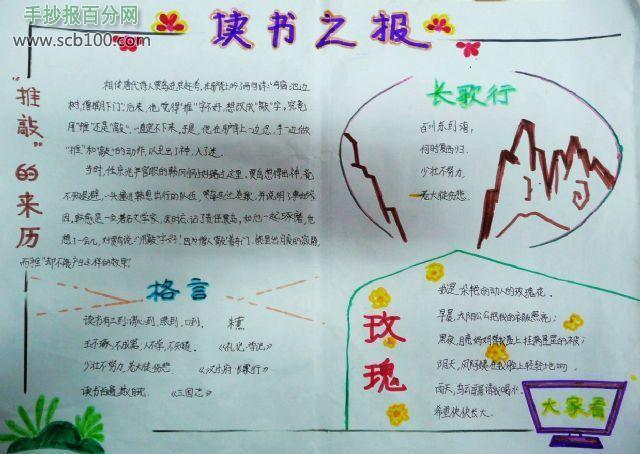 手抄报百分网
www.scb100.com
读书之报
"推敲"的来历
相传唐代诗人贾岛进京赶考,在驴背上得了两句诗:"鸟宿池边
树,僧推月下门。"后来,他觉得"推"字不好,想改成"敲"字,究竟
用"推"还是"敲",一直定不下来。于是,他在驴背上一边念,手一边做
"推"和"敲"的动作,以至出了神,入了迷。
当时,任京兆尹官职的韩
不知退避,一头撞进韩愈出行的队伍,
因,韩愈是一名著名文学家,
想了一会儿,对贾岛说:"用敲字好!因为僧人
而"推"却不能产生这样的效果。"
长歌行
百川东到海,
何时复西归。
少壮不努力,
老大徒伤悲。
格言
读书有三到:谓心到,眼到,口到。 朱熹
玉不琢,不成器,人不学,不知道。 《礼记·学记》
少壮不努力,老大徒伤悲 《汉乐府·长歌行》
读书百遍,其义自见。 《三国志》
玫瑰
我是一朵艳的动人的玫瑰花。
早晨,太阳公公把我的衣服照亮;
黑夜,月亮妈妈替我盖上挂满星星的被;
阴天,风阿姨在我脸上轻轻地吻
雨天,乌云哥哥请我喝水,
希望快快长大。
大家看